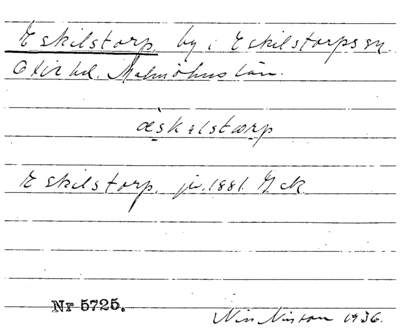 Eskilstorp, by i Eskilstorps sn.
Oxie hd. Malmöhus län.
æskəlstærp
Eskilstorp. jv. 1881. Gck
Nr 5725.
Nils Nilsson 1936.